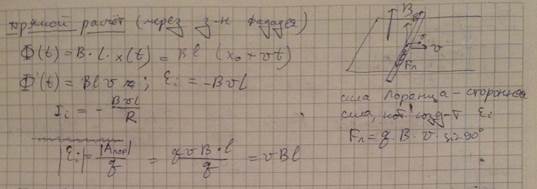 прямой расчёт (через з-н Фарадея)
Ф(t) = B·l·x(t) = Bl (x₀ + vt)
Ф'(t) = Blv ; Ɛi = -Bvl
Ii = - Bvl/R
|Ɛi| = |Aлор|/q = qvB·l/q = vBl
B
v
Fл
сила Лоренца - сторонняя
сила, кот. созд-т Ɛi
Fл = q·B·v·sin90°